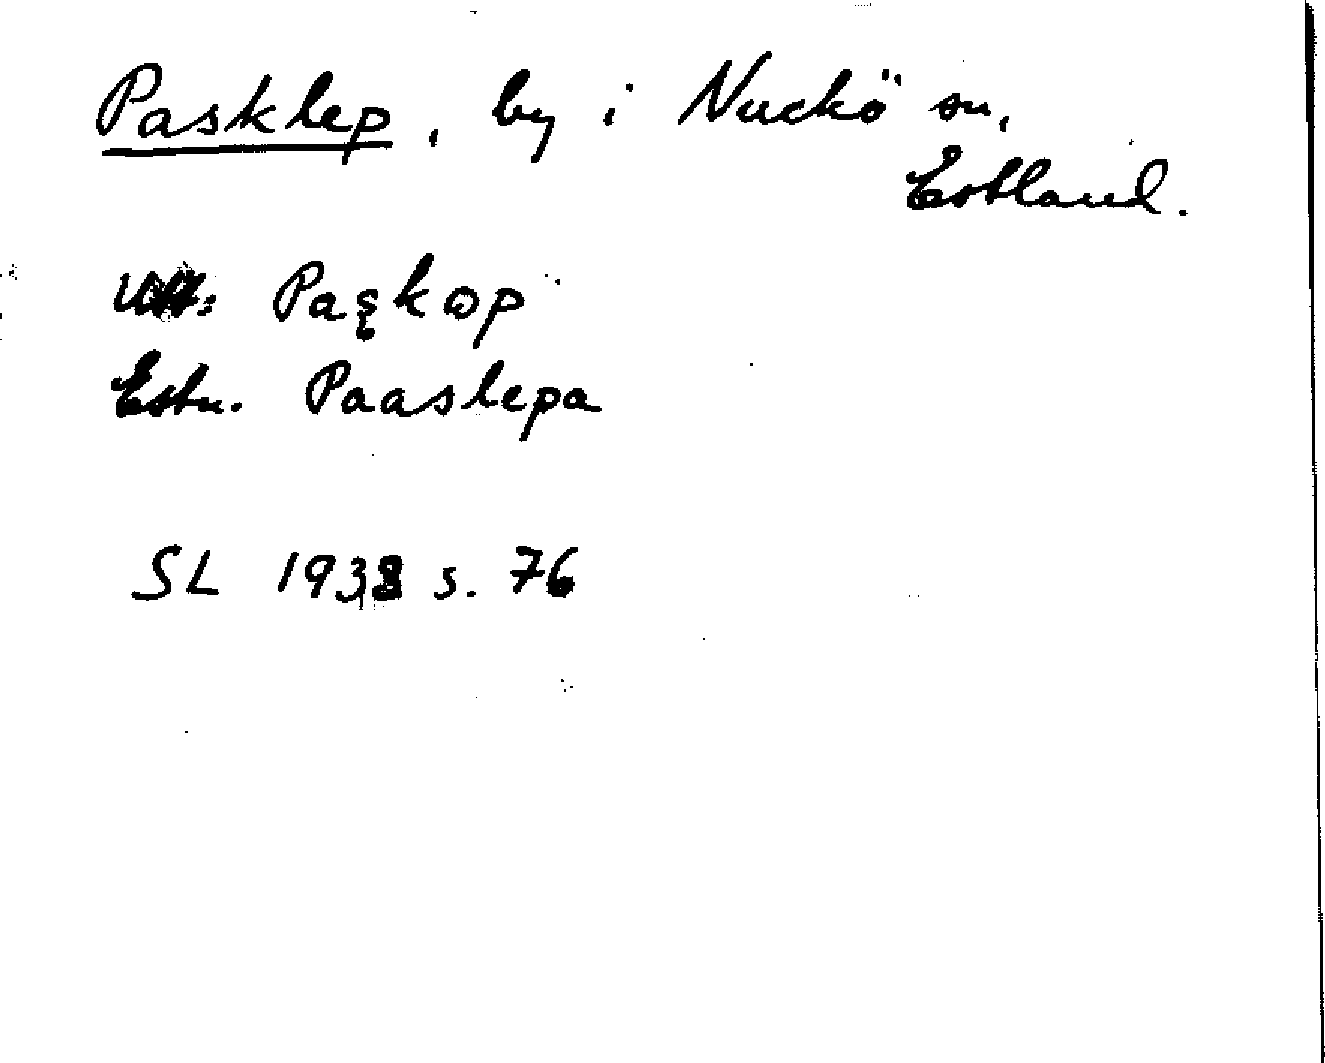 Pasklep, by i Nuckö sn,
Estland.
Utt: Pa
Estn. Paaslepa
SL 1938 s. 76